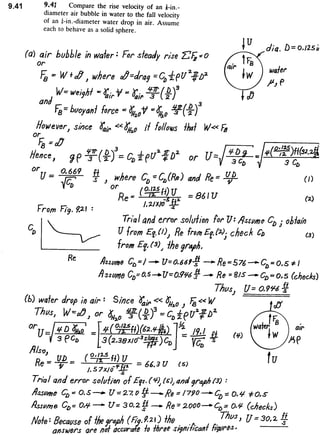 9.41
9.41 Compare the rise velocity of an ⅛-in.-
diameter air bubble in water to the fall velocity
of an ⅛-in.-diameter water drop in air. Assume
each to behave as a solid sphere.
(a) air bubble in water: For steady rise ΣF_z = 0
or
F_B = W + 𝒟, where 𝒟 = drag = C_D ½ρU² π/4 D²
W = weight = γ_air V = γ_air 4π/3 (D/2)³
and
F_B = buoyant force = γ_H₂O V = γ_H₂O 4π/3 (D/2)³
U
dia. D = 0.125 in
air
F_B
W
water
μ, ρ
𝒟
However, since γ_air << γ_H₂O it follows that W << F_B
or
F_B = 𝒟
Hence, gρ 4π/3 (D/2)³ = C_D ½ρU² π/4 D² or U = √(4Dg / 3C_D) =
or
U = 0.669/√C_D ft/s, where C_D = C_D(Re) and Re = UD/ν (1)
or
Re = (0.125/12 ft)U / 1.21×10⁻⁵ ft²/s = 861 U (2)
From Fig. 9.21:
C_D
Re
Trial and error solution for U: Assume C_D; obtain
U from Eq.(1), Re from Eq.(2); check C_D (3)
from Eq.(3), the graph.
Assume C_D = 1 → U = 0.669 ft/s → Re = 576 → C_D = 0.5 ≠ 1
Assume C_D = 0.5 → U = 0.946 ft/s → Re = 815 → C_D = 0.5 (checks)
Thus, U = 0.946 ft/s
(b) water drop in air: Since γ_air << γ_H₂O, F_B << W
Thus, W = 𝒟, or γ_H₂O 4π/3 (D/2)³ = C_D ½ρU² π/4 D²
or U = √(4Dγ_H₂O / 3ρC_D) = [4(0.125/12 ft)(62.4 lb/ft³) / 3(2.38×10⁻³ slugs/ft³)C_D]^½ = 19.1/√C_D ft/s (4)
𝒟
F_B
water
W
air
μ, ρ
U
Also,
Re = UD/ν = (0.125/12 ft)U / 1.57×10⁻⁴ ft²/s = 66.3 U (5)
Trial and error solution of Eqs. (4), (5), and graph (3):
Assume C_D = 0.5 → U = 27.0 ft/s → Re = 1790 → C_D = 0.4 ≠ 0.5
Assume C_D = 0.4 → U = 30.2 ft/s → Re = 2000 → C_D = 0.4 (checks)
Thus, U = 30.2 ft/s
Note: Because of the graph (Fig. 9.21) the
answers are not accurate to three significant figures.